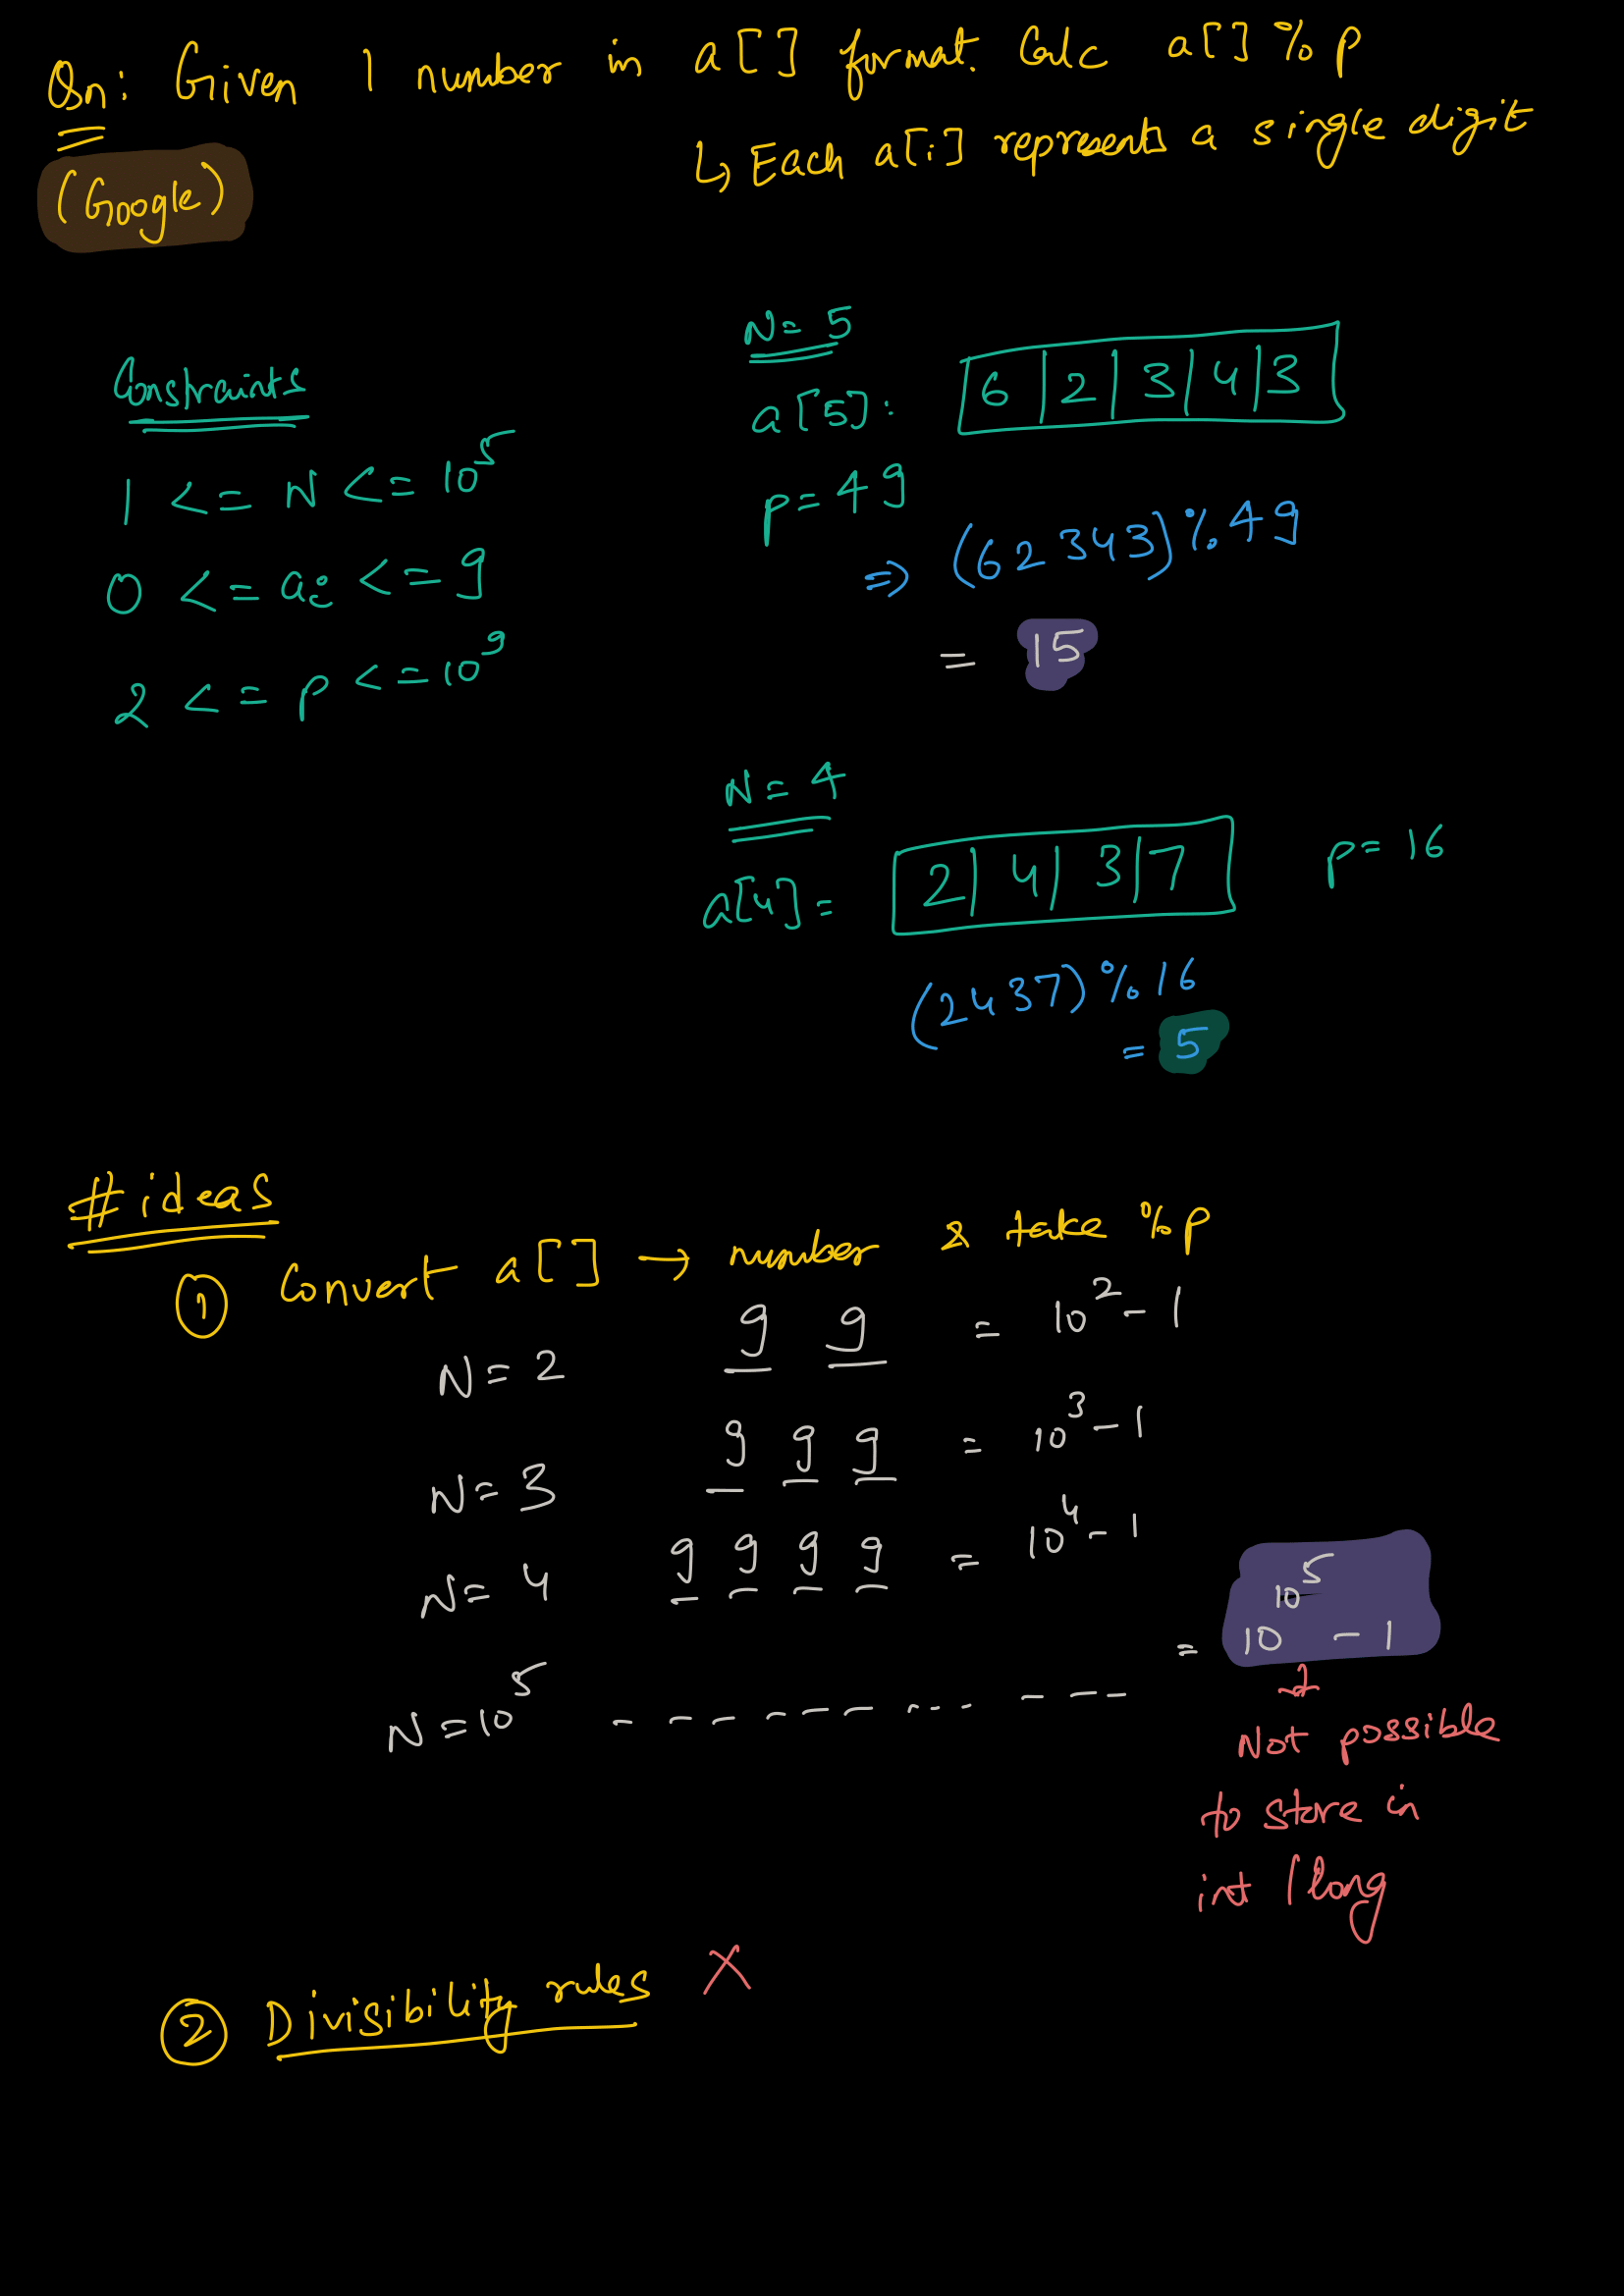 Qn: Given 1 number in a[] format. Calc a[] % p
↳ Each a[i] represents a single digit
(Google)
Constraints
1 <= N <= 10^5
0 <= ai <= 9
2 <= p <= 10^9
N = 5
a[5]: 6 | 2 | 3 | 4 | 3
p = 49
=> (62343) % 49
= 15
N = 4
a[4] = 2 | 4 | 3 | 7 p = 16
(2437) % 16
= 5
# ideas
① Convert a[] → number & take % p
N = 2 9 9 = 10^2 - 1
N = 3 9 9 9 = 10^3 - 1
N = 4 9 9 9 9 = 10^4 - 1
N = 10^5 - - - - - - - ... - - - = 10^10^5 - 1
Not possible
to store in
int / long
② Divisibility rules X